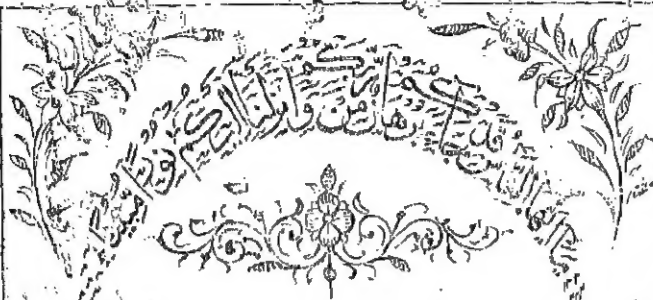 يا أيها الناس قد جاءكم برهان من ربكم وأنزلنا إليكم نورا مبينا